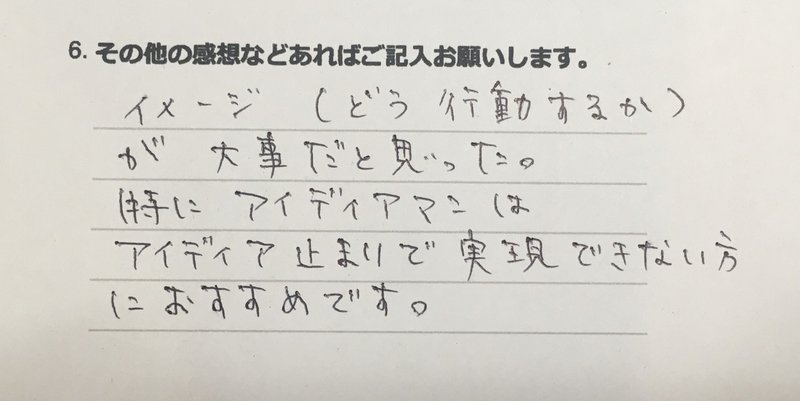 6. その他の感想などあればご記入お願いします。
イメージ (どう行動するか)
が 大事だと思った。
特に アイディアマンは
アイディア止まりで実現できない方
におすすめです。